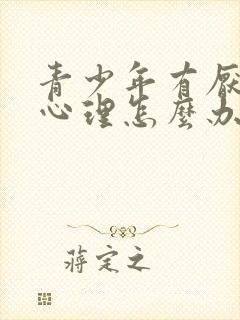 青少年有厭
心理怎麼办
蔣定之